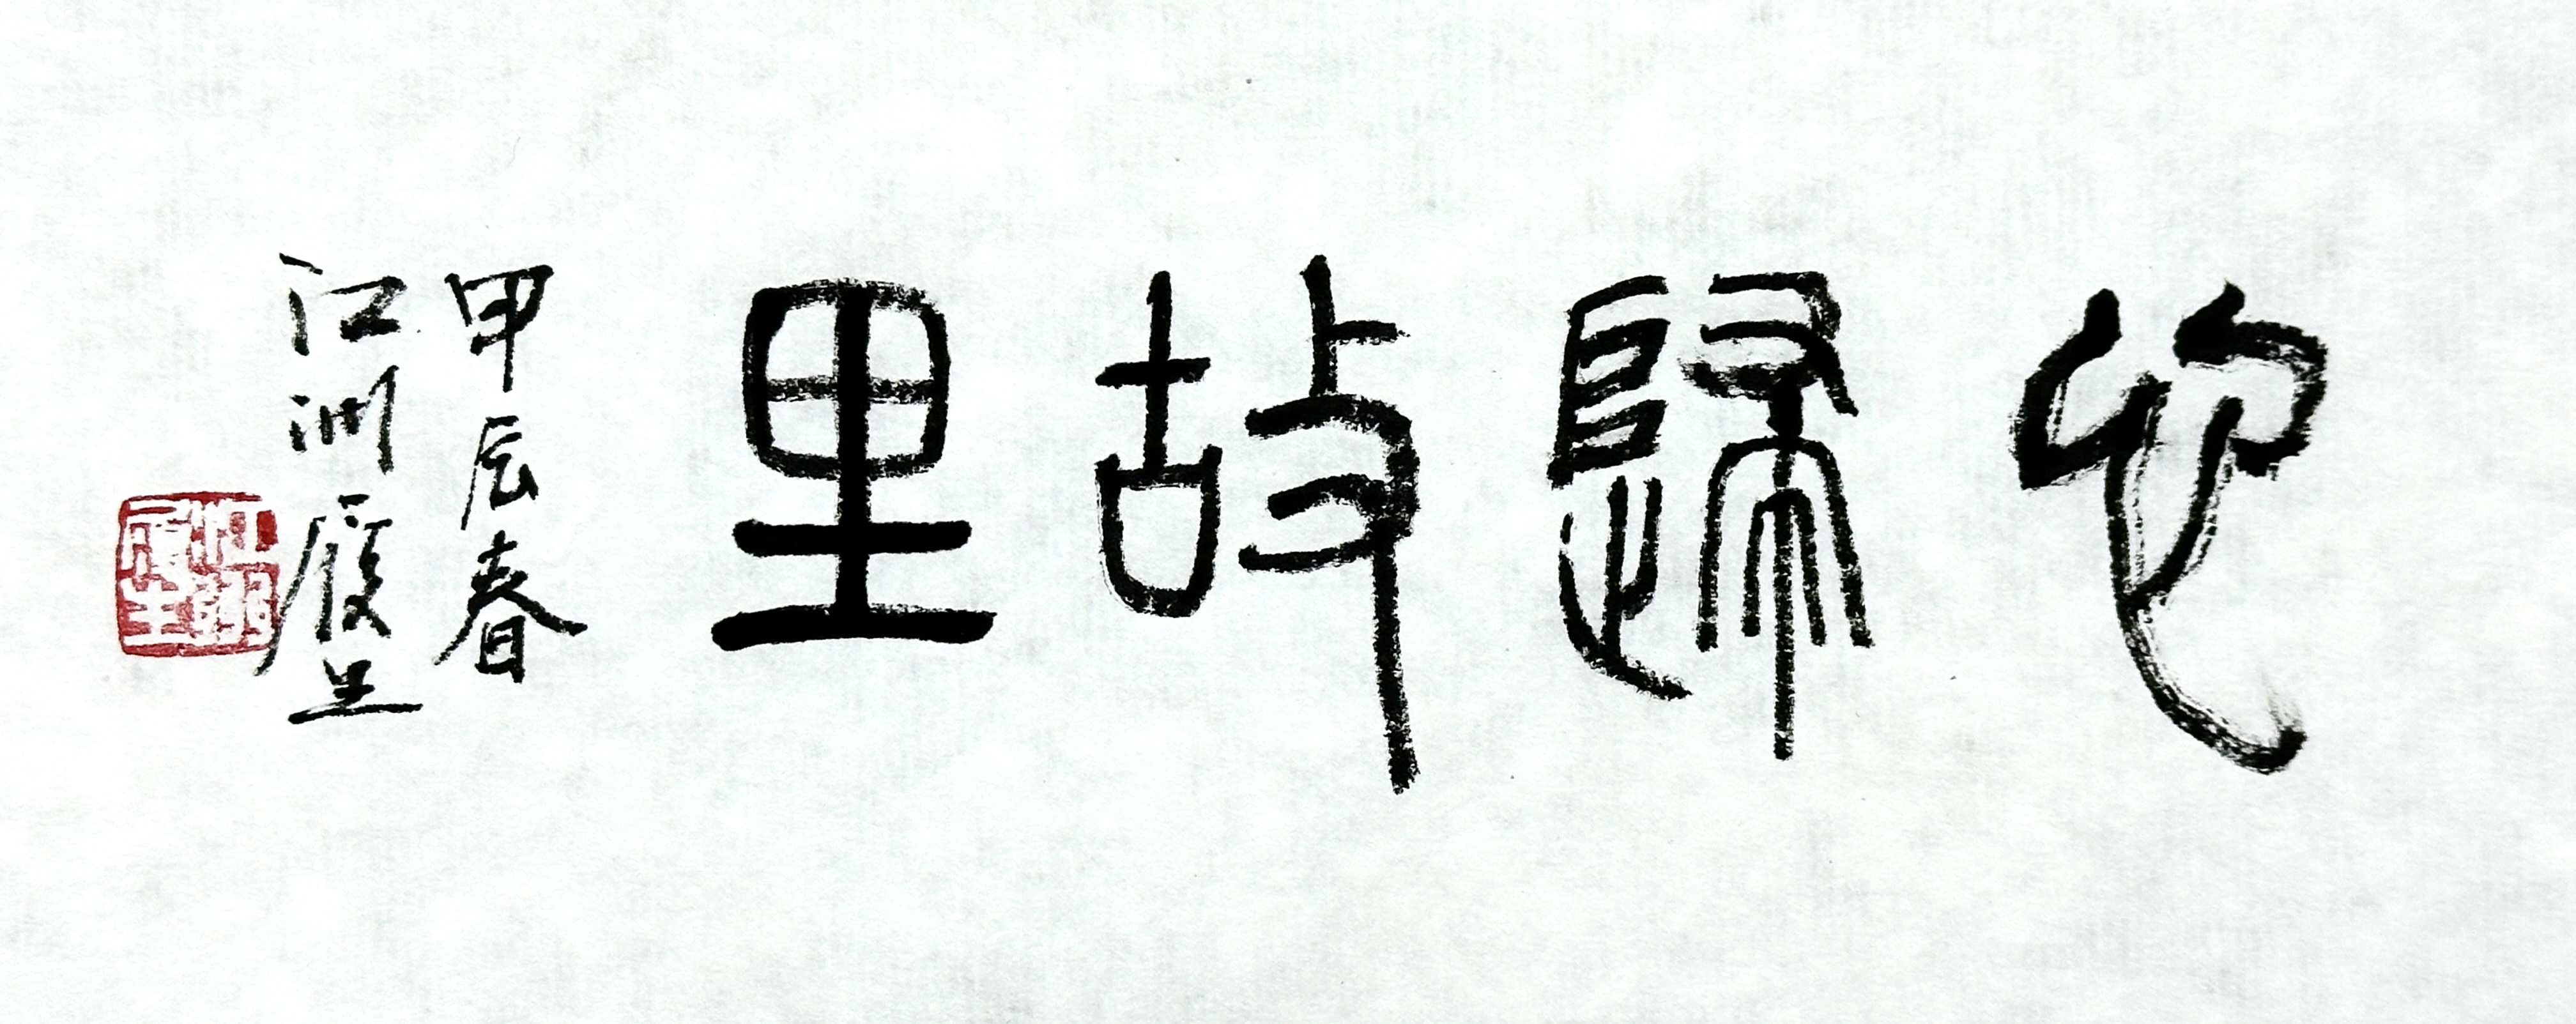 心歸故里
甲辰春
江洲履生